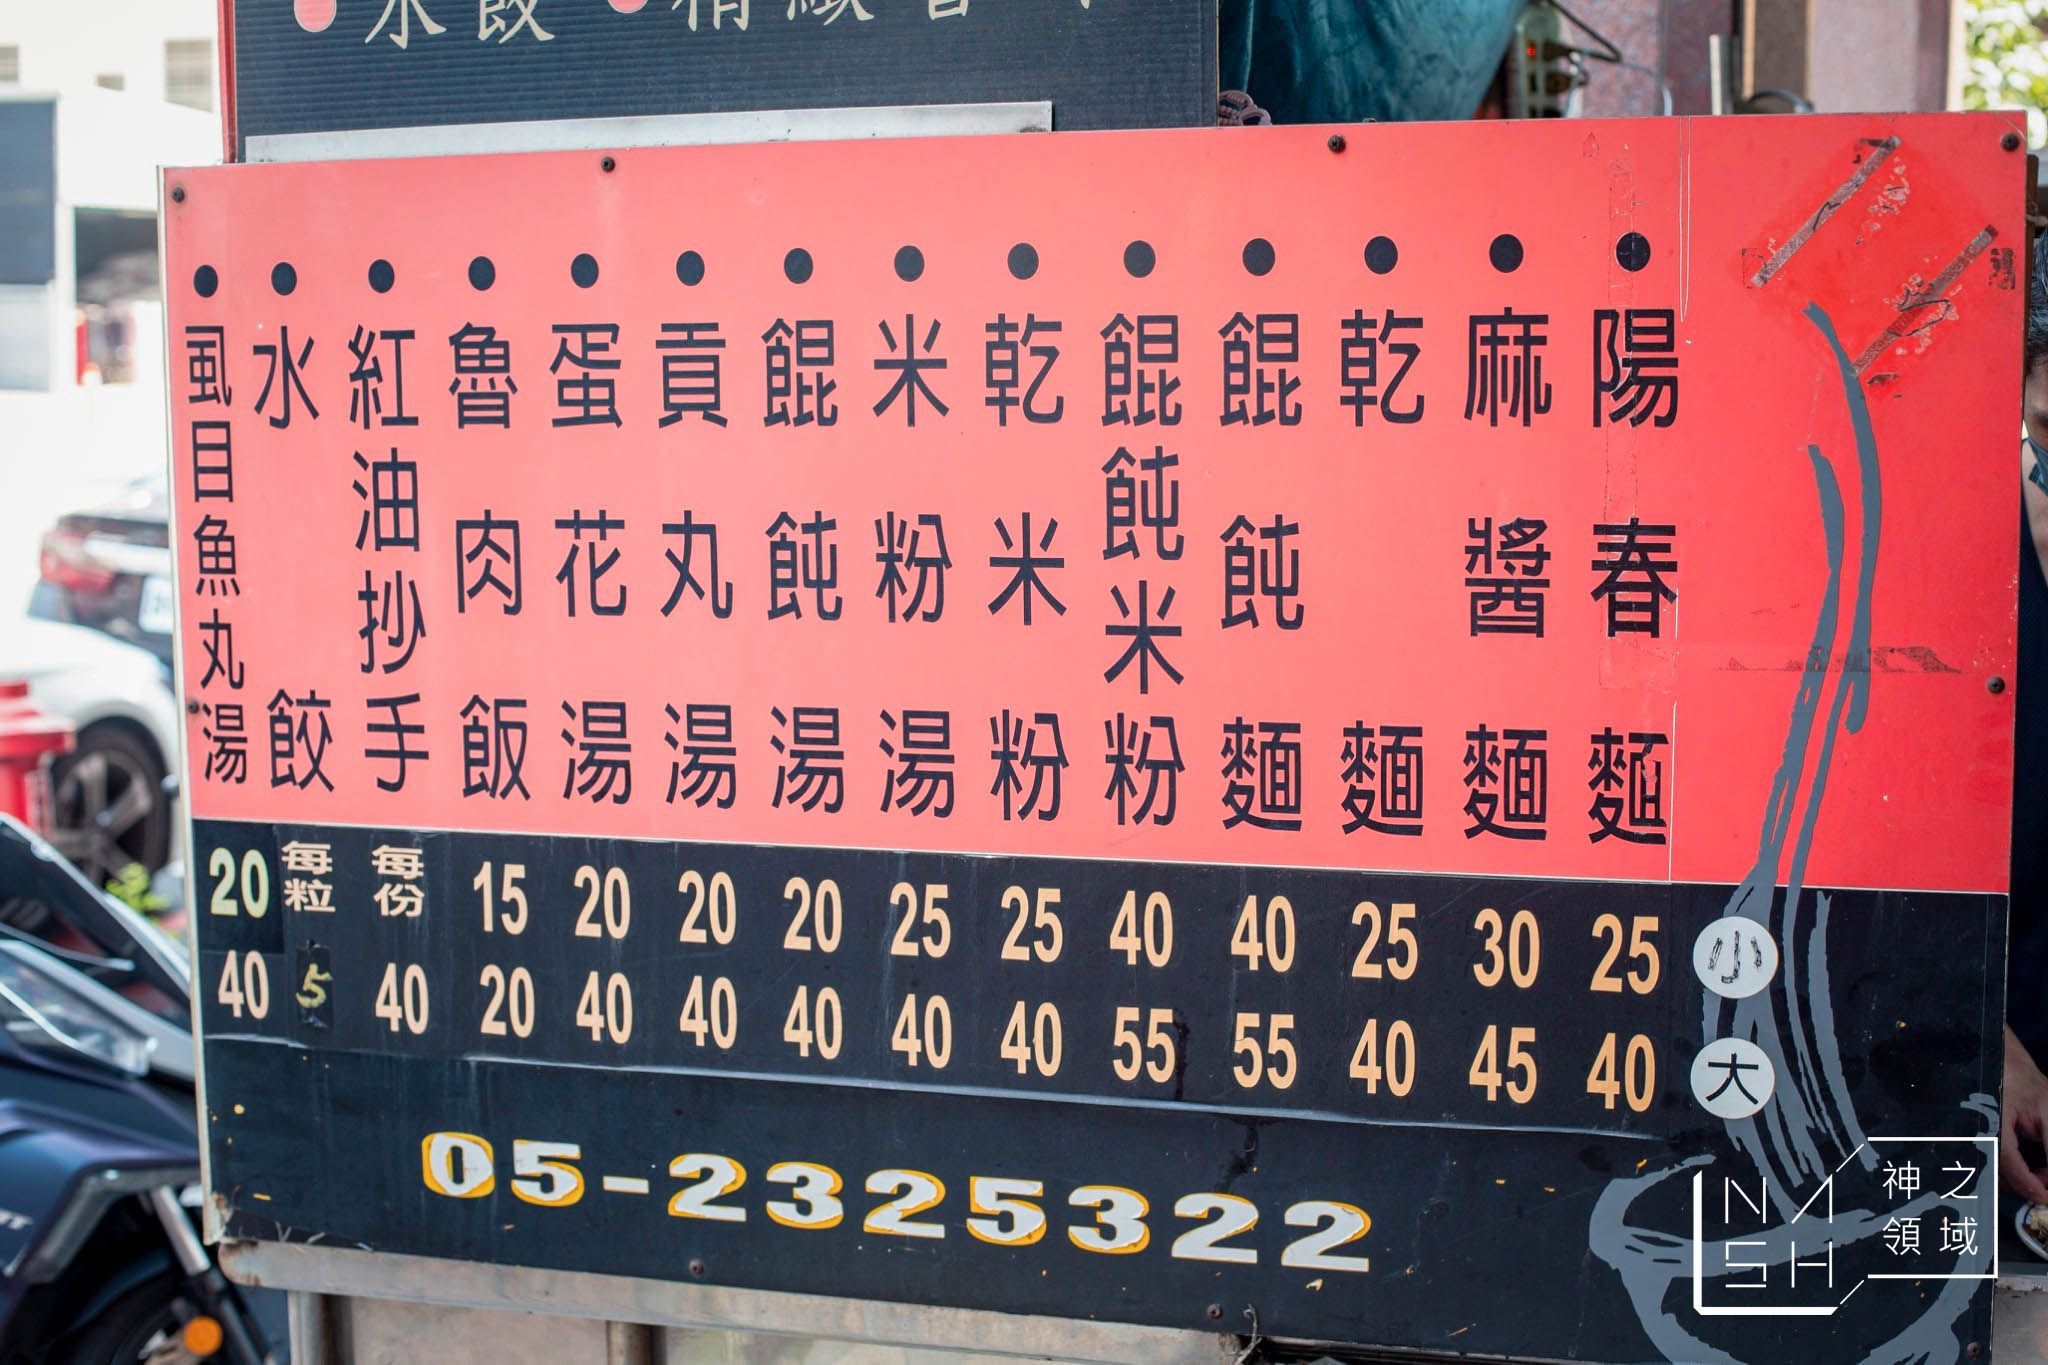 水餃
陽春麵
麻醬麵
乾麵
餛飩麵
餛飩米粉
乾米粉
米粉湯
餛飩湯
貢丸湯
蛋花湯
魯肉飯
紅油抄手
水餃
虱目魚丸湯
20 每粒 每份 15 20 20 20 25 25 40 40 25 30 25 小
40 5 40 20 40 40 40 40 40 55 55 40 45 40 大
05-2325322
NASH 神之領域